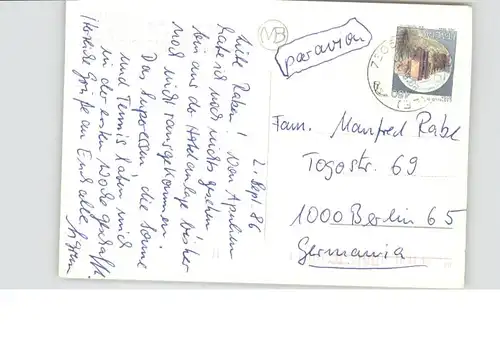 2. Sept. 86
Liebe Raben! Von Apulien
habe ich noch nichts gesehen
bin aus der Hotelanlage bisher
noch nicht rausgekommen.
Das Superessen, die Sonne
und Tennis haben mich
in der ersten Woche geschafft.
Herzliche Grüße an Euch alle
MB
par avion
Fam. Manfred Rabe
Togostr. 69
1000 Berlin 65
Germania